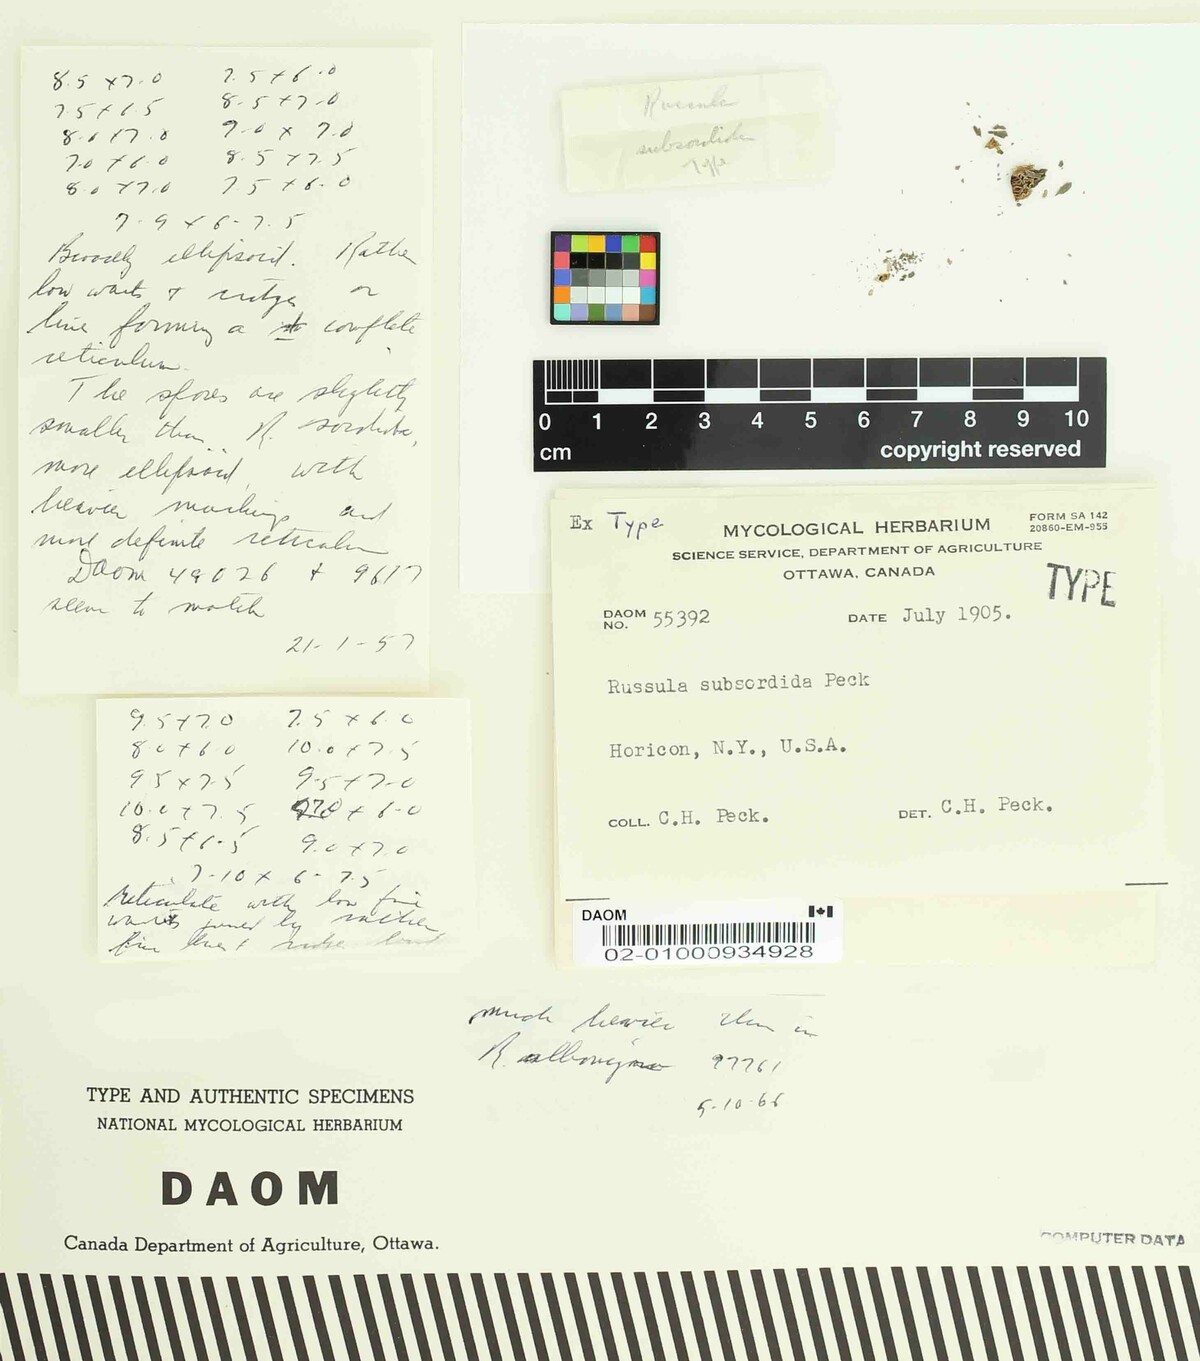 8.5 x 7.0 7.5 x 6.0
7.5 x 6.5 8.5 x 7.0
8.0 x 7.0 9.0 x 7.0
7.0 x 6.0 8.5 x 7.5
8.0 x 7.0 7.5 x 6.0
7-9 x 6-7.5
Broadly ellipsoid. Rather
low warts + ridges or
line forming a ± complete
reticulum.
The spores are slightly
smaller than R. sordida,
more ellipsoid, with
heavier markings and
more definite reticulum
Daom 48026 + 9617
seem to match
21-1-57
9.5 x 7.0 7.5 x 6.0
8.0 x 6.0 10.0 x 7.5
9.5 x 7.5 9.5 x 7.0
10.0 x 7.5 x 6.0
8.5 x 6.5 9.0 x 7.0
7-10 x 6-7.5
Reticulate with low fine
warts joined by rather
fine lines +
much heavier than in
R. albonigra 97761
5-10-66
Russula
subsordida
Type
0 1 2 3 4 5 6 7 8 9 10
cm copyright reserved
Ex Type
MYCOLOGICAL HERBARIUM
FORM SA 142
20860-EM-955
SCIENCE SERVICE, DEPARTMENT OF AGRICULTURE
OTTAWA, CANADA
TYPE
DAOM NO. 55392 DATE July 1905.
Russula subsordida Peck
Horicon, N.Y., U.S.A.
COLL. C.H. Peck. DET. C.H. Peck.
DAOM
02-01000934928
TYPE AND AUTHENTIC SPECIMENS
NATIONAL MYCOLOGICAL HERBARIUM
DAOM
Canada Department of Agriculture, Ottawa.
COMPUTER DATA